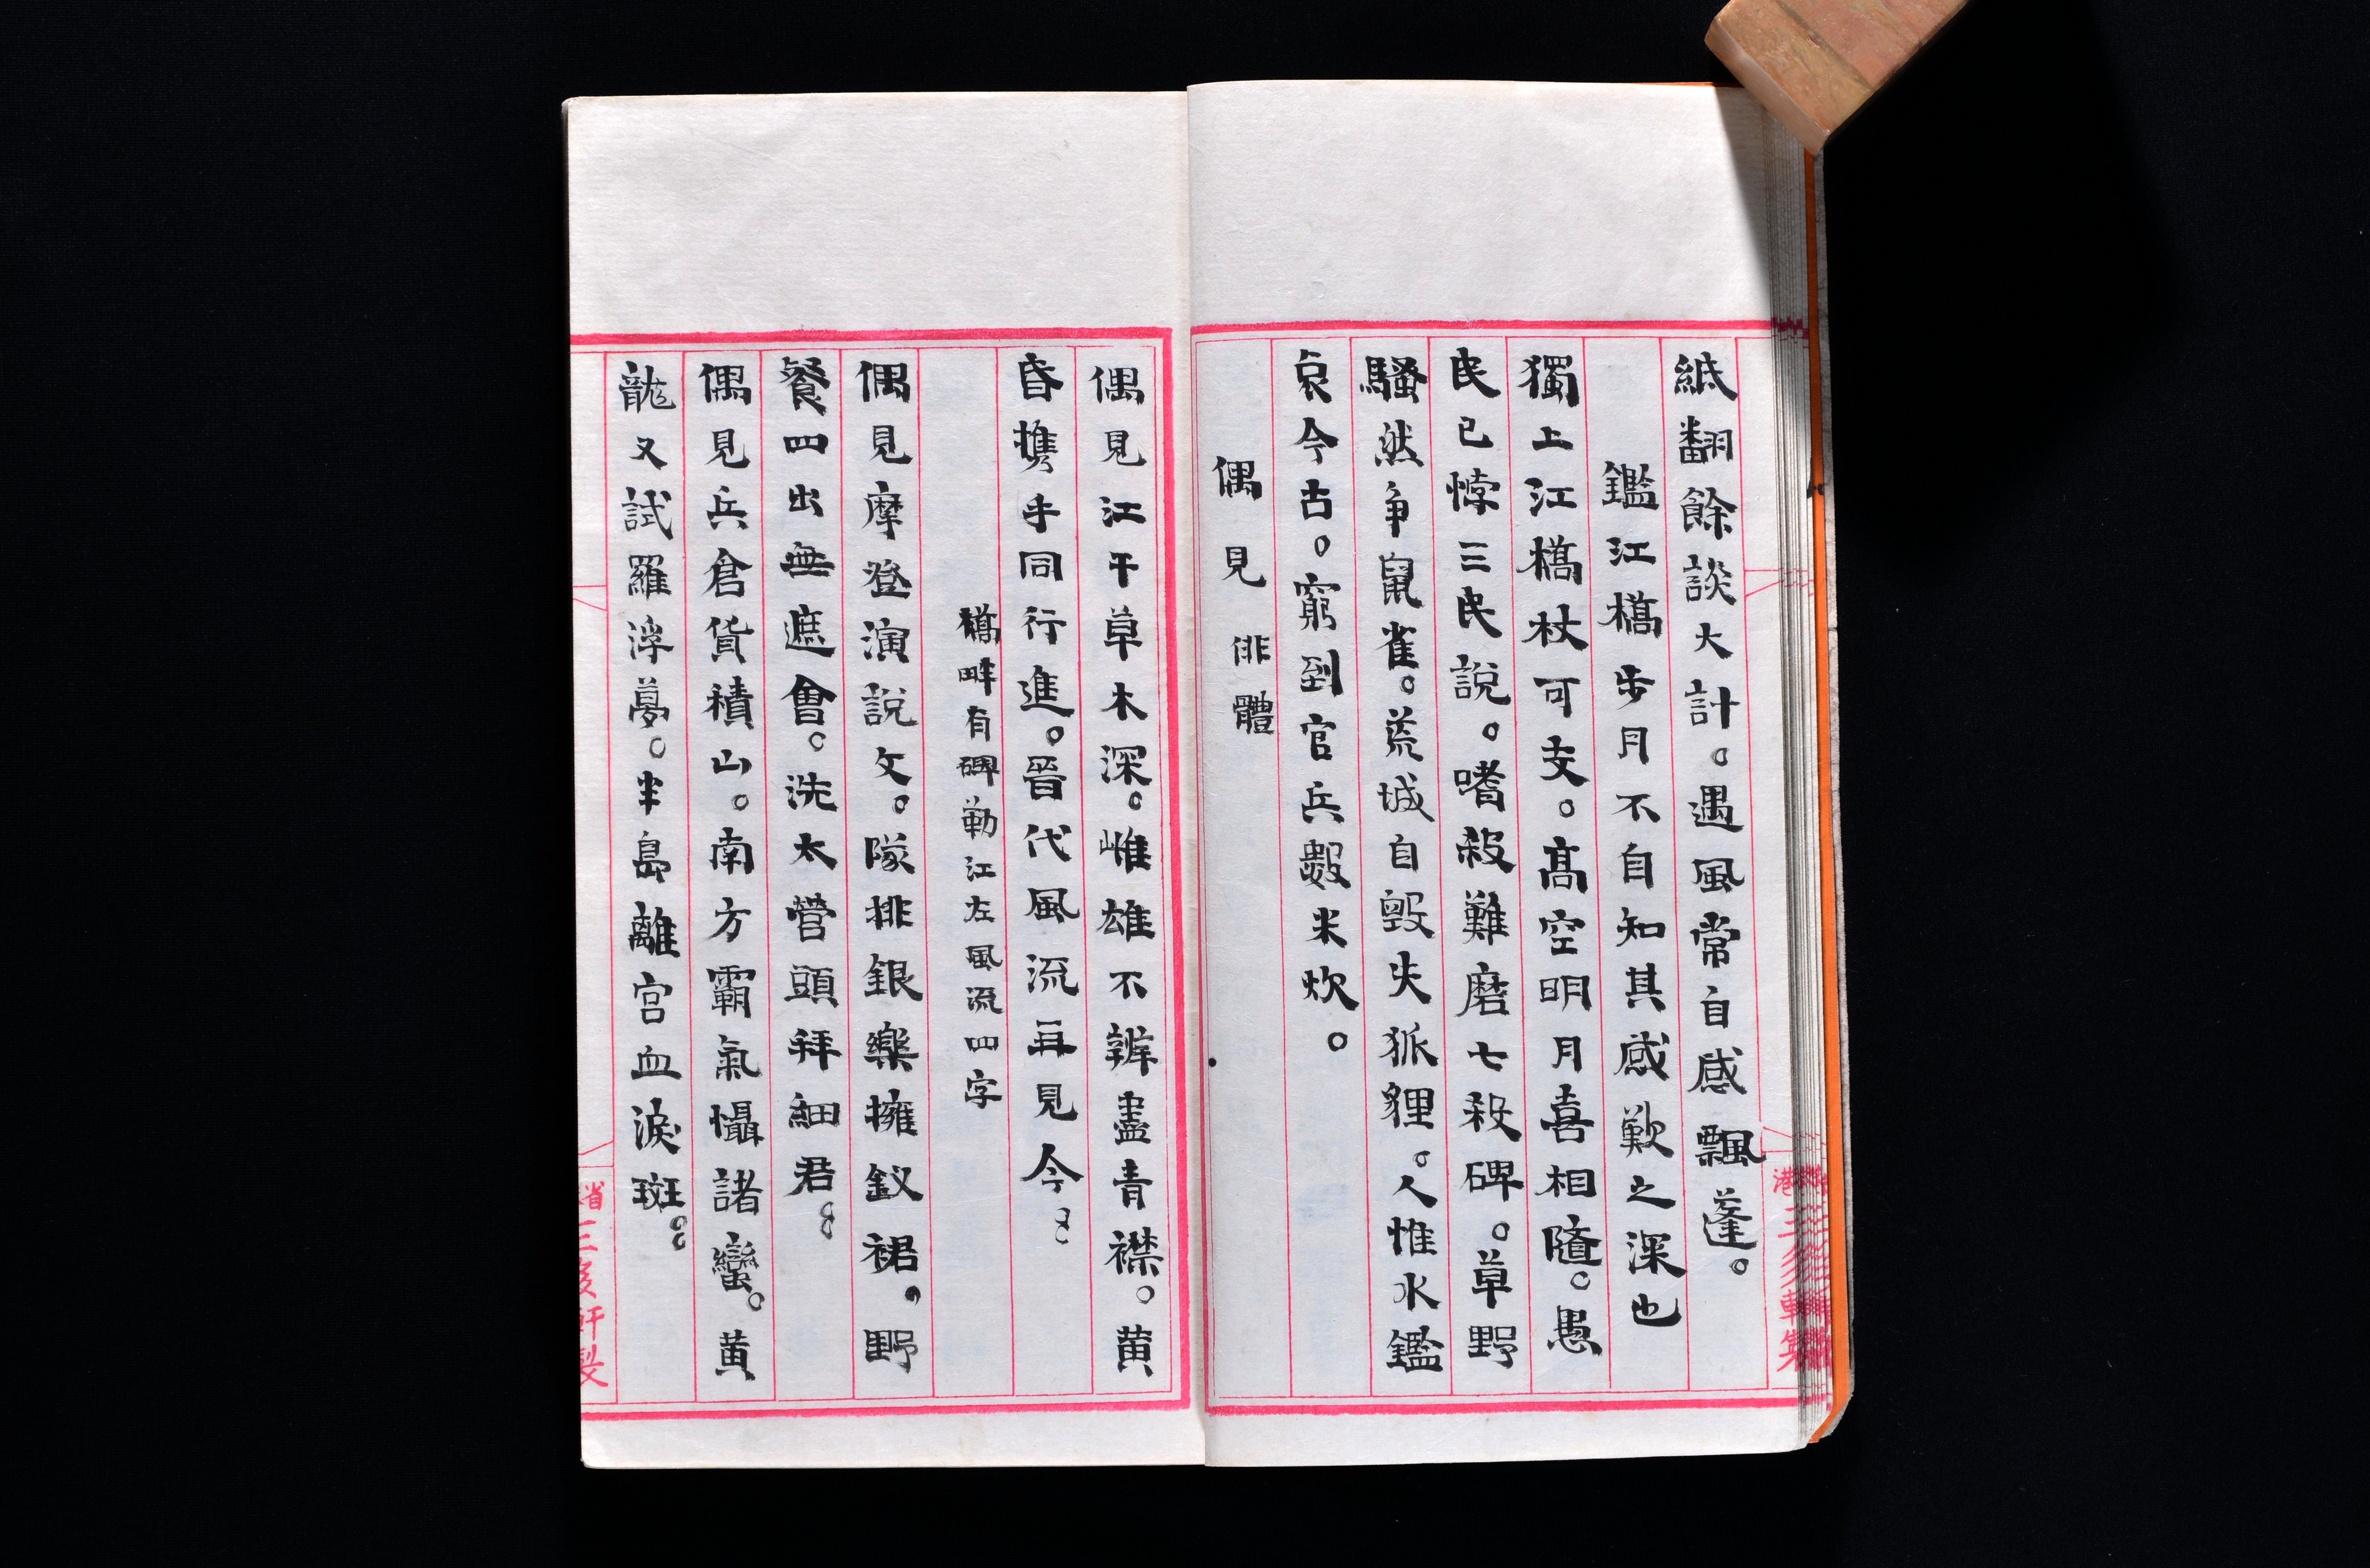 紙翻餘談大計。遇風常自感飄蓬。
鑑江橋步月不自知其感歎之深也
獨上江橋杖可支。高空明月喜相隨。愚
民已悖三民說。嗜殺難磨七殺碑。草野
騷然爭鼠雀。荒城自毀失狐狸。人惟水鑑
哀今古。窮到官兵數米炊。
偶見 俳體
偶見江干草木深。雌雄不辨盡青襟。黄
昏攜手同行進。晉代風流再見今。
橋畔有碑勒江左風流四字
偶見摩登演說文。隊排銀樂擁釵裙。野
餐四出無遮會。洗太營頭拜細君。
偶見兵倉貨積山。南方霸氣懾諸蠻。黄
龍又試羅浮夢。半島離宮血淚斑。
省三多軒製